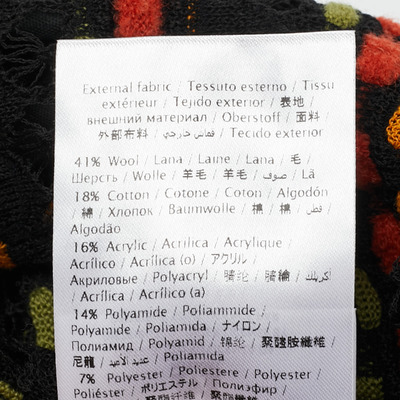 External fabric / Tessuto esterno / Tissu
extérieur / Tejido exterior / 表地 /
внешний материал / Oberstoff / 面料 /
外部布料 / قماش خارجي / Tecido exterior
41% Wool / Lana / Laine / Lana / 毛 /
Шерсть / Wolle / 羊毛 / 羊毛 / صوف / Lã
18% Cotton / Cotone / Coton / Algodón
/ 綿 / Хлопок / Baumwolle / 棉 / 棉 / قطن /
Algodão
16% Acrylic / Acrilica / Acrylique /
Acrílico / Acrílico (o) / アクリル /
Акриловые / Polyacryl / 腈纶 / 腈綸 / أكريليك
/ Acrílica / Acrílico (a)
14% Polyamide / Poliammide /
Polyamide / Poliamida / ナイロン /
Полиамид / Polyamid / 锦纶 / 聚醯胺纖維 /
尼龍 / عديد الأميد / Poliamida
7% Polyester / Poliestere / Polyester /
Poliéster / ポリエステル / Полиэфир /
Polyester / 聚酯纤维 / 聚酯纖維 /